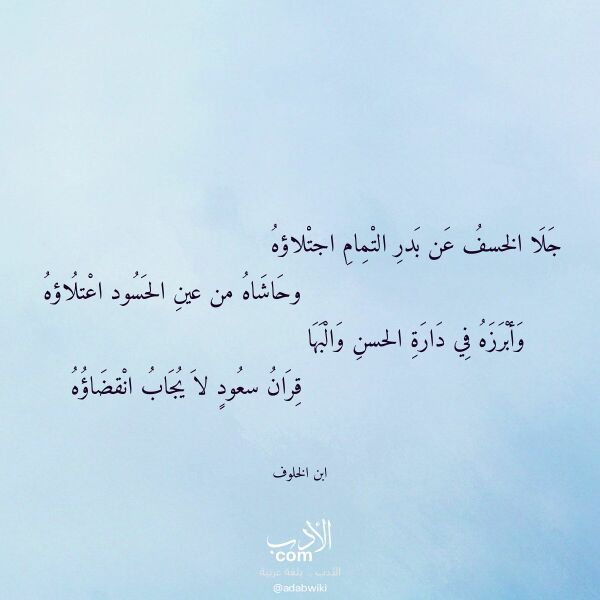 جَلَا الخسفُ عَن بَدرِ التْمِامِ اجتْلاؤهُ
وحَاشَاهُ من عينِ الحَسُود اعْتلُاؤهُ
وَأَبْرَزَهُ فِي دَارَةِ الحسنِ وَالْبَهَا
قِرَانُ سعُودٍ لاَ يُجَابُ انْقضَاؤُهُ
ابن الخلوف
الأدب
com
الأدب .. بلغة عربية
@adabwiki